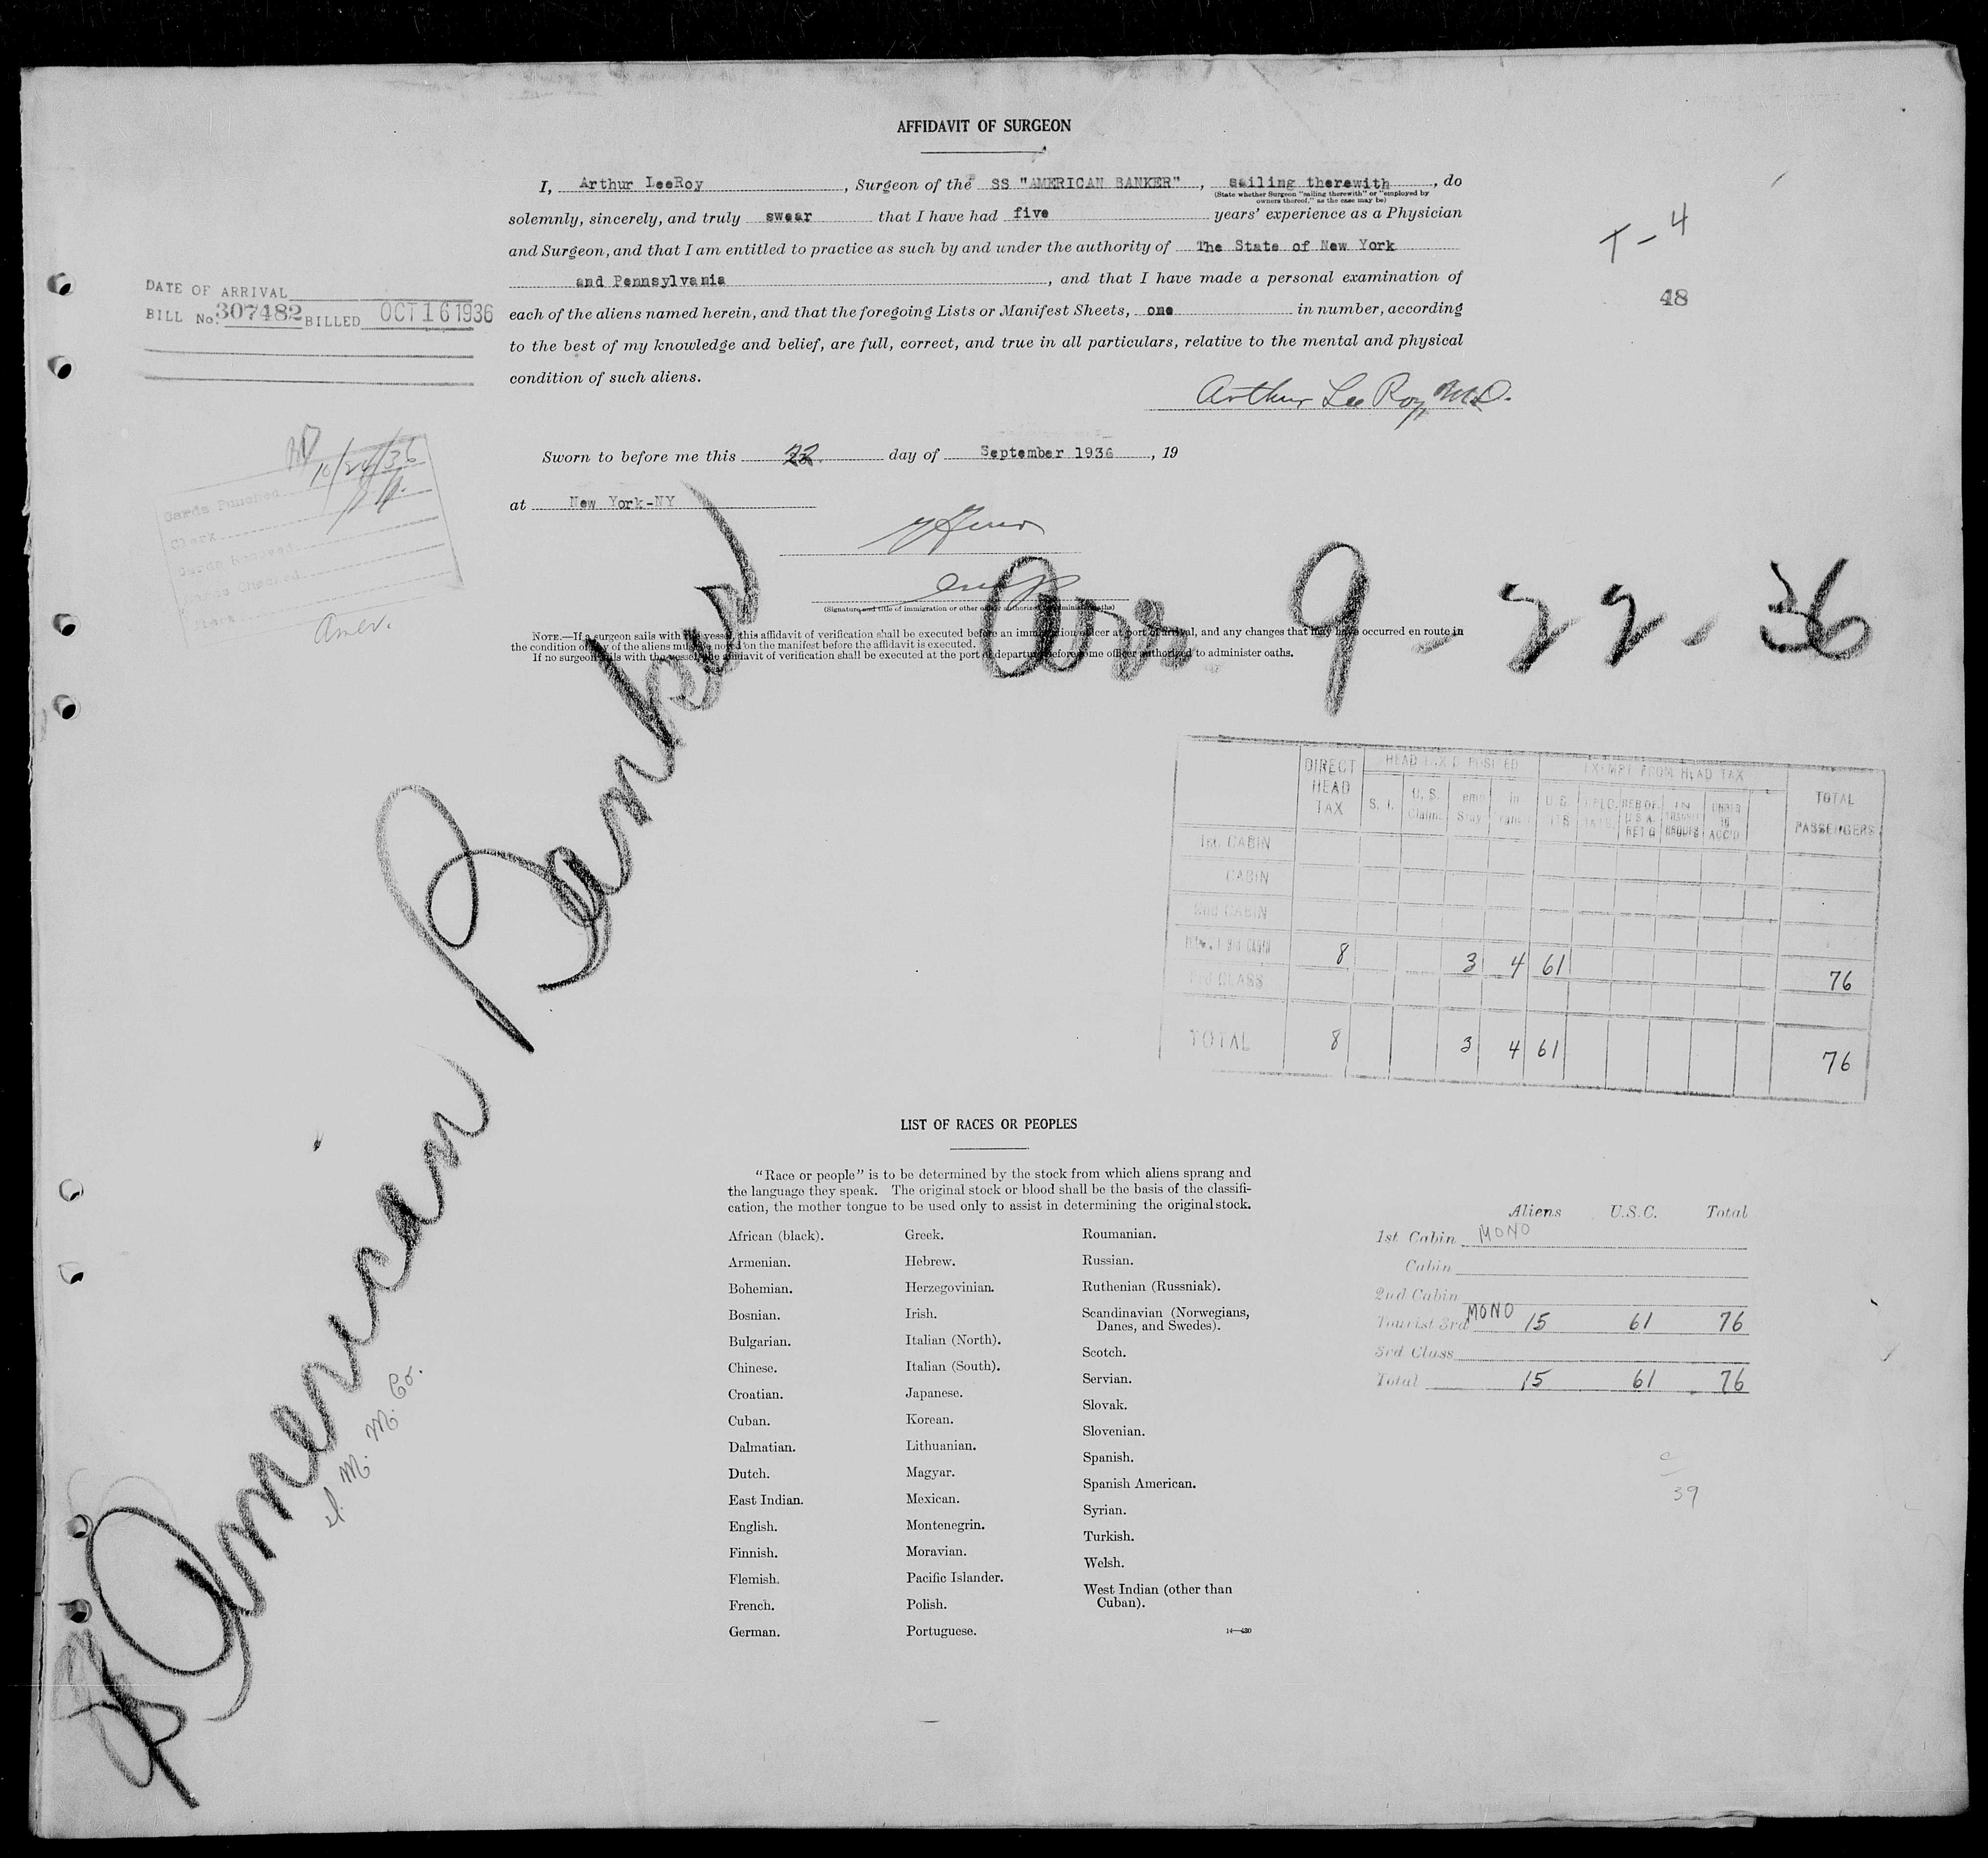 AFFIDAVIT OF SURGEON
I, Arthur LeeRoy, Surgeon of the SS "AMERICAN BANKER", sailing therewith, do
(State whether Surgeon "sailing therewith" or "employed by
owners thereof," as the case may be)
solemnly, sincerely, and truly swear that I have had five years' experience as a Physician
and Surgeon, and that I am entitled to practice as such by and under the authority of The State of New York
and Pennsylvania, and that I have made a personal examination of
each of the aliens named herein, and that the foregoing Lists or Manifest Sheets, one in number, according
to the best of my knowledge and belief, are full, correct, and true in all particulars, relative to the mental and physical
condition of such aliens.
Arthur Lee Roy, M.D.
Sworn to before me this 22 day of September 1936, 19
at New York-NY
(Signature and title of immigration or other officer authorized to administer oaths)
NOTE.—If a surgeon sails with the vessel, this affidavit of verification shall be executed before an immigration officer at port of arrival, and any changes that may have occurred en route in
the condition of any of the aliens must be noted on the manifest before the affidavit is executed.
If no surgeon sails with the vessel, the affidavit of verification shall be executed at the port of departure before some officer authorized to administer oaths.
T-4
48
DATE OF ARRIVAL
BILL No. 307482 BILLED OCT 16 1936
10/24/36
Cards Punched
Clerk
Cards Checked
Clerk
Amer.
Arr 9-22-36
SS American Banker
I. M. M. Co.
DIRECT HEAD TAX
HEAD TAX DEPOSITED
EXEMPT FROM HEAD TAX
TOTAL PASSENGERS
S. I.
U. S. Claim.
U.S.
UNDER 16 ACC'D
1st. CABIN
CABIN
2nd CABIN
3rd CABIN 8 3 4 61 76
3rd CLASS
TOTAL 8 3 4 61 76
LIST OF RACES OR PEOPLES
"Race or people" is to be determined by the stock from which aliens sprang and
the language they speak. The original stock or blood shall be the basis of the classifi-
cation, the mother tongue to be used only to assist in determining the original stock.
African (black).
Armenian.
Bohemian.
Bosnian.
Bulgarian.
Chinese.
Croatian.
Cuban.
Dalmatian.
Dutch.
East Indian.
English.
Finnish.
Flemish.
French.
German.
Greek.
Hebrew.
Herzegovinian.
Irish.
Italian (North).
Italian (South).
Japanese.
Korean.
Lithuanian.
Magyar.
Mexican.
Montenegrin.
Moravian.
Pacific Islander.
Polish.
Portuguese.
Roumanian.
Russian.
Ruthenian (Russniak).
Scandinavian (Norwegians,
Danes, and Swedes).
Scotch.
Servian.
Slovak.
Slovenian.
Spanish.
Spanish American.
Syrian.
Turkish.
Welsh.
West Indian (other than
Cuban).
14—430
Aliens U.S.C. Total
1st Cabin MONO
Cabin
2nd Cabin
Tourist 3rd MONO 15 61 76
3rd Class
Total 15 61 76
39